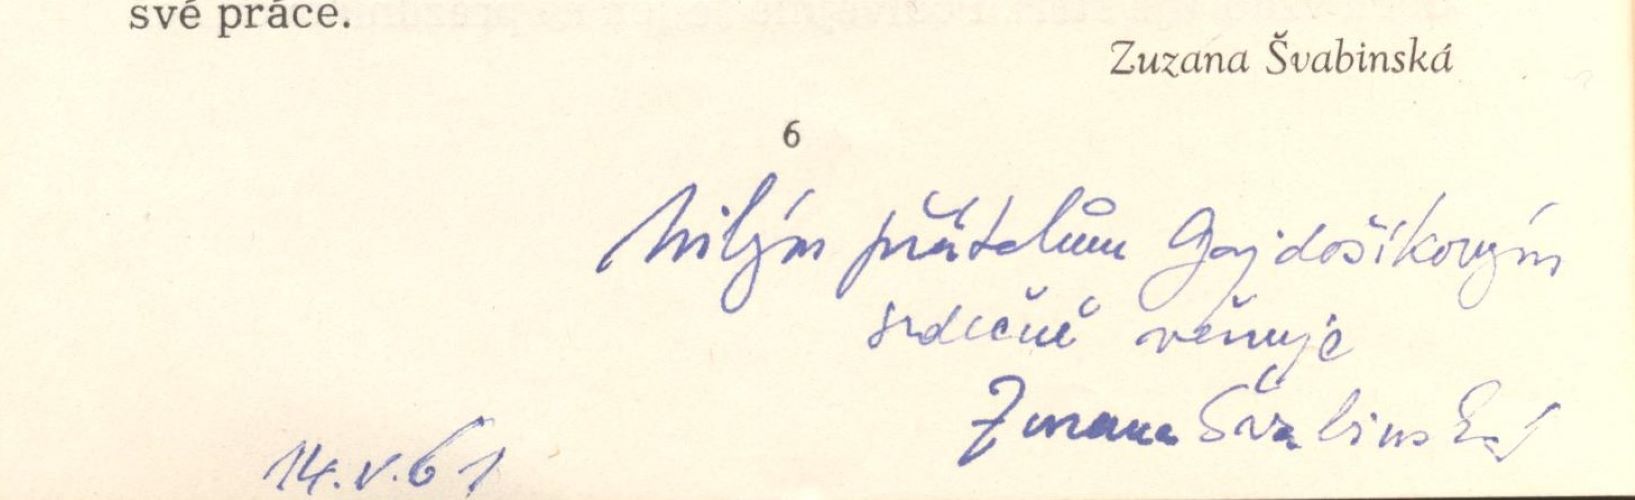 své práce.
Zuzana Švabinská
6
Milým přátelům Gajdošíkovým
srdečně věnuje
Zuzana Švabinská
14.V.61